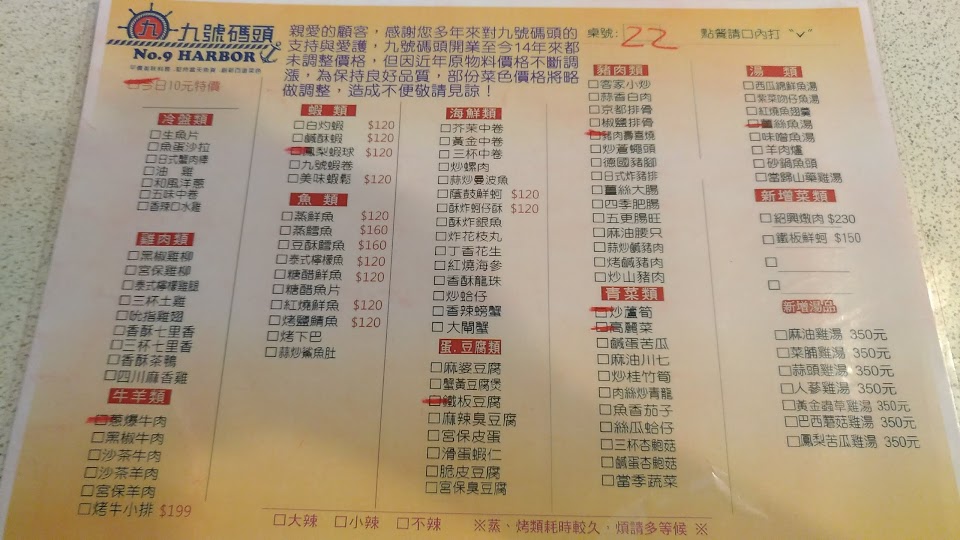 九 九號碼頭
No.9 HARBOR
親愛的顧客，感謝您多年來對九號碼頭的
支持與愛護，九號碼頭開業至今14年來都
未調整價格，但因近年原物料價格不斷調
漲，為保持良好品質，部份菜色價格將略
做調整，造成不便敬請見諒！
桌號: 22
點餐請口內打 "✓"
□今日10元特價
冷盤類
□生魚片
□魚蛋沙拉
□日式蟹肉棒
□油 雞
□和風洋蔥
□五味中卷
□香辣口水雞
雞肉類
□黑椒雞柳
□宮保雞柳
□泰式檸檬雞腿
□三杯土雞
□吮指雞翅
□香酥七里香
□三杯七里香
□香酥茶鴨
□四川麻香雞
牛羊類
□蔥爆牛肉
□黑椒牛肉
□沙茶牛肉
□沙茶羊肉
□宮保羊肉
□烤牛小排 $199
蝦 類
□白灼蝦 $120
□鹹酥蝦 $120
□鳳梨蝦球 $120
□九號蝦卷
□美味蝦鬆 $120
魚 類
□蒸鮮魚 $120
□蒸鱈魚 $160
□豆酥鱈魚 $160
□泰式檸檬魚 $120
□糖醋鮮魚 $120
□糖醋魚片
□紅燒鮮魚 $120
□烤鹽鯖魚 $120
□烤下巴
□蒜炒鯊魚肚
海鮮類
□芥茉中卷
□黃金中卷
□三杯中卷
□炒螺肉
□蒜炒曼波魚
□蔭鼓鮮蚵 $120
□酥炸蚵仔酥 $120
□酥炸銀魚
□炸花枝丸
□丁香花生
□紅燒海參
□香酥龍珠
□炒蛤仔
□香辣螃蟹
□大閘蟹
蛋.豆腐類
□麻婆豆腐
□蟹黃豆腐煲
□鐵板豆腐
□麻辣臭豆腐
□宮保皮蛋
□滑蛋蝦仁
□脆皮豆腐
□宮保臭豆腐
豬肉類
□客家小炒
□蒜香白肉
□京都排骨
□椒鹽排骨
□豬肉壽喜燒
□炒薑鴨頭
□德國豬腳
□日式炸豬排
□薑絲大腸
□四季肥腸
□五更腸旺
□麻油腰只
□蒜炒鹹豬肉
□烤鹹豬肉
□炒山豬肉
青菜類
□炒蘆筍
□高麗菜
□鹹蛋苦瓜
□麻油川七
□炒桂竹筍
□肉絲炒青龍
□魚香茄子
□絲瓜蛤仔
□三杯杏鮑菇
□鹹蛋杏鮑菇
□當季蔬菜
湯 類
□西瓜綿鮮魚湯
□紫菜吻仔魚湯
□紅燒魚翅羹
□薑絲魚湯
□味噌魚湯
□羊肉爐
□砂鍋魚頭
□當歸山藥雞湯
新增菜類
□紹興燉肉 $230
□鐵板鮮蚵 $150
□
□
新增湯品
□麻油雞湯 350元
□菜脯雞湯 350元
□蒜頭雞湯 350元
□人蔘雞湯 350元
□黃金蟲草雞湯 350元
□巴西蘑菇雞湯 350元
□鳳梨苦瓜雞湯 350元
□大辣 □小辣 □不辣 ※蒸、烤類耗時較久，煩請多等候 ※